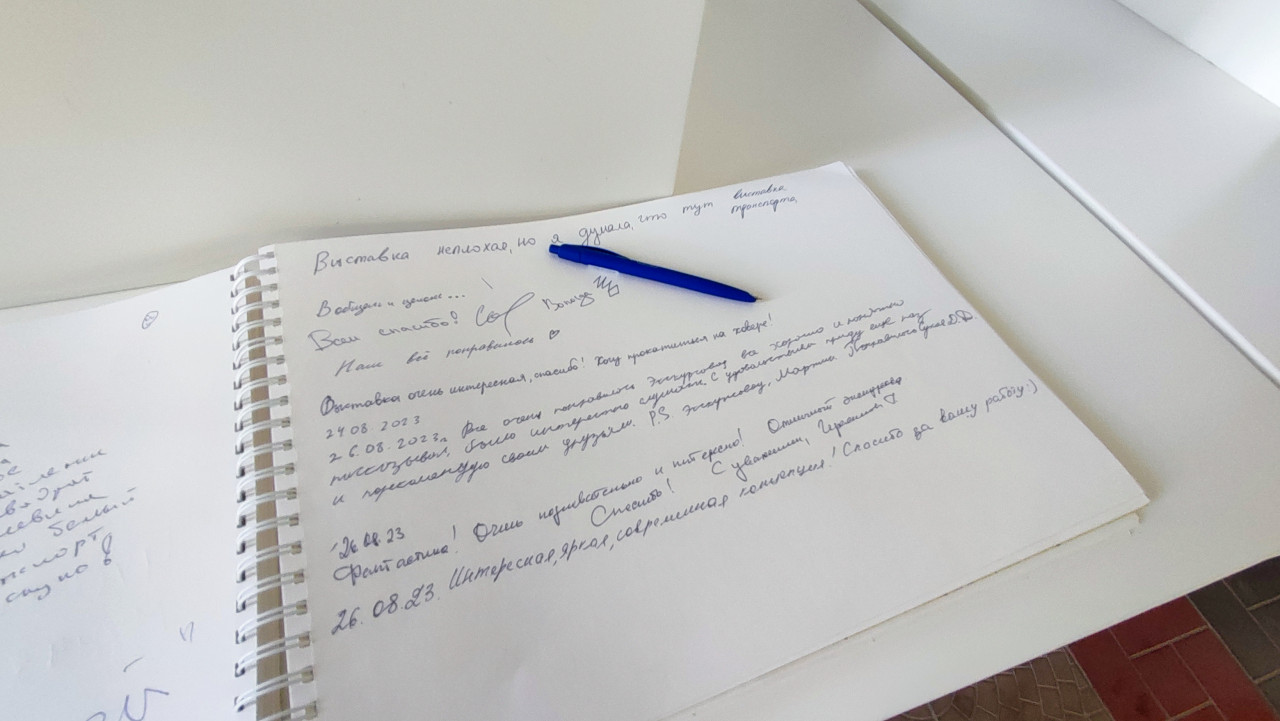 Выставка неплохая, но я думала, что тут выставка
транспорта
Вообщем и целом...
Всем спасибо!
Нам всё понравилось ♡
Выставка очень интересная, спасибо! Хочу прокатиться на ховере!
24.08.2023
26.08.2023г. Все очень понравилось Экскурсовод все хорошо и понятно
рассказывал, было интересно слушать. С удовольствием приду еще раз
и порекомендую своим друзьям. P.S. Экскурсовод, Мартин
26.08.23
Фантастика! Очень познавательно и интересно! Отличный экскурсовод
Спасибо! С уважением,
26.08.23. Интересная, яркая, современная концепция! Спасибо за вашу работу:)
белый